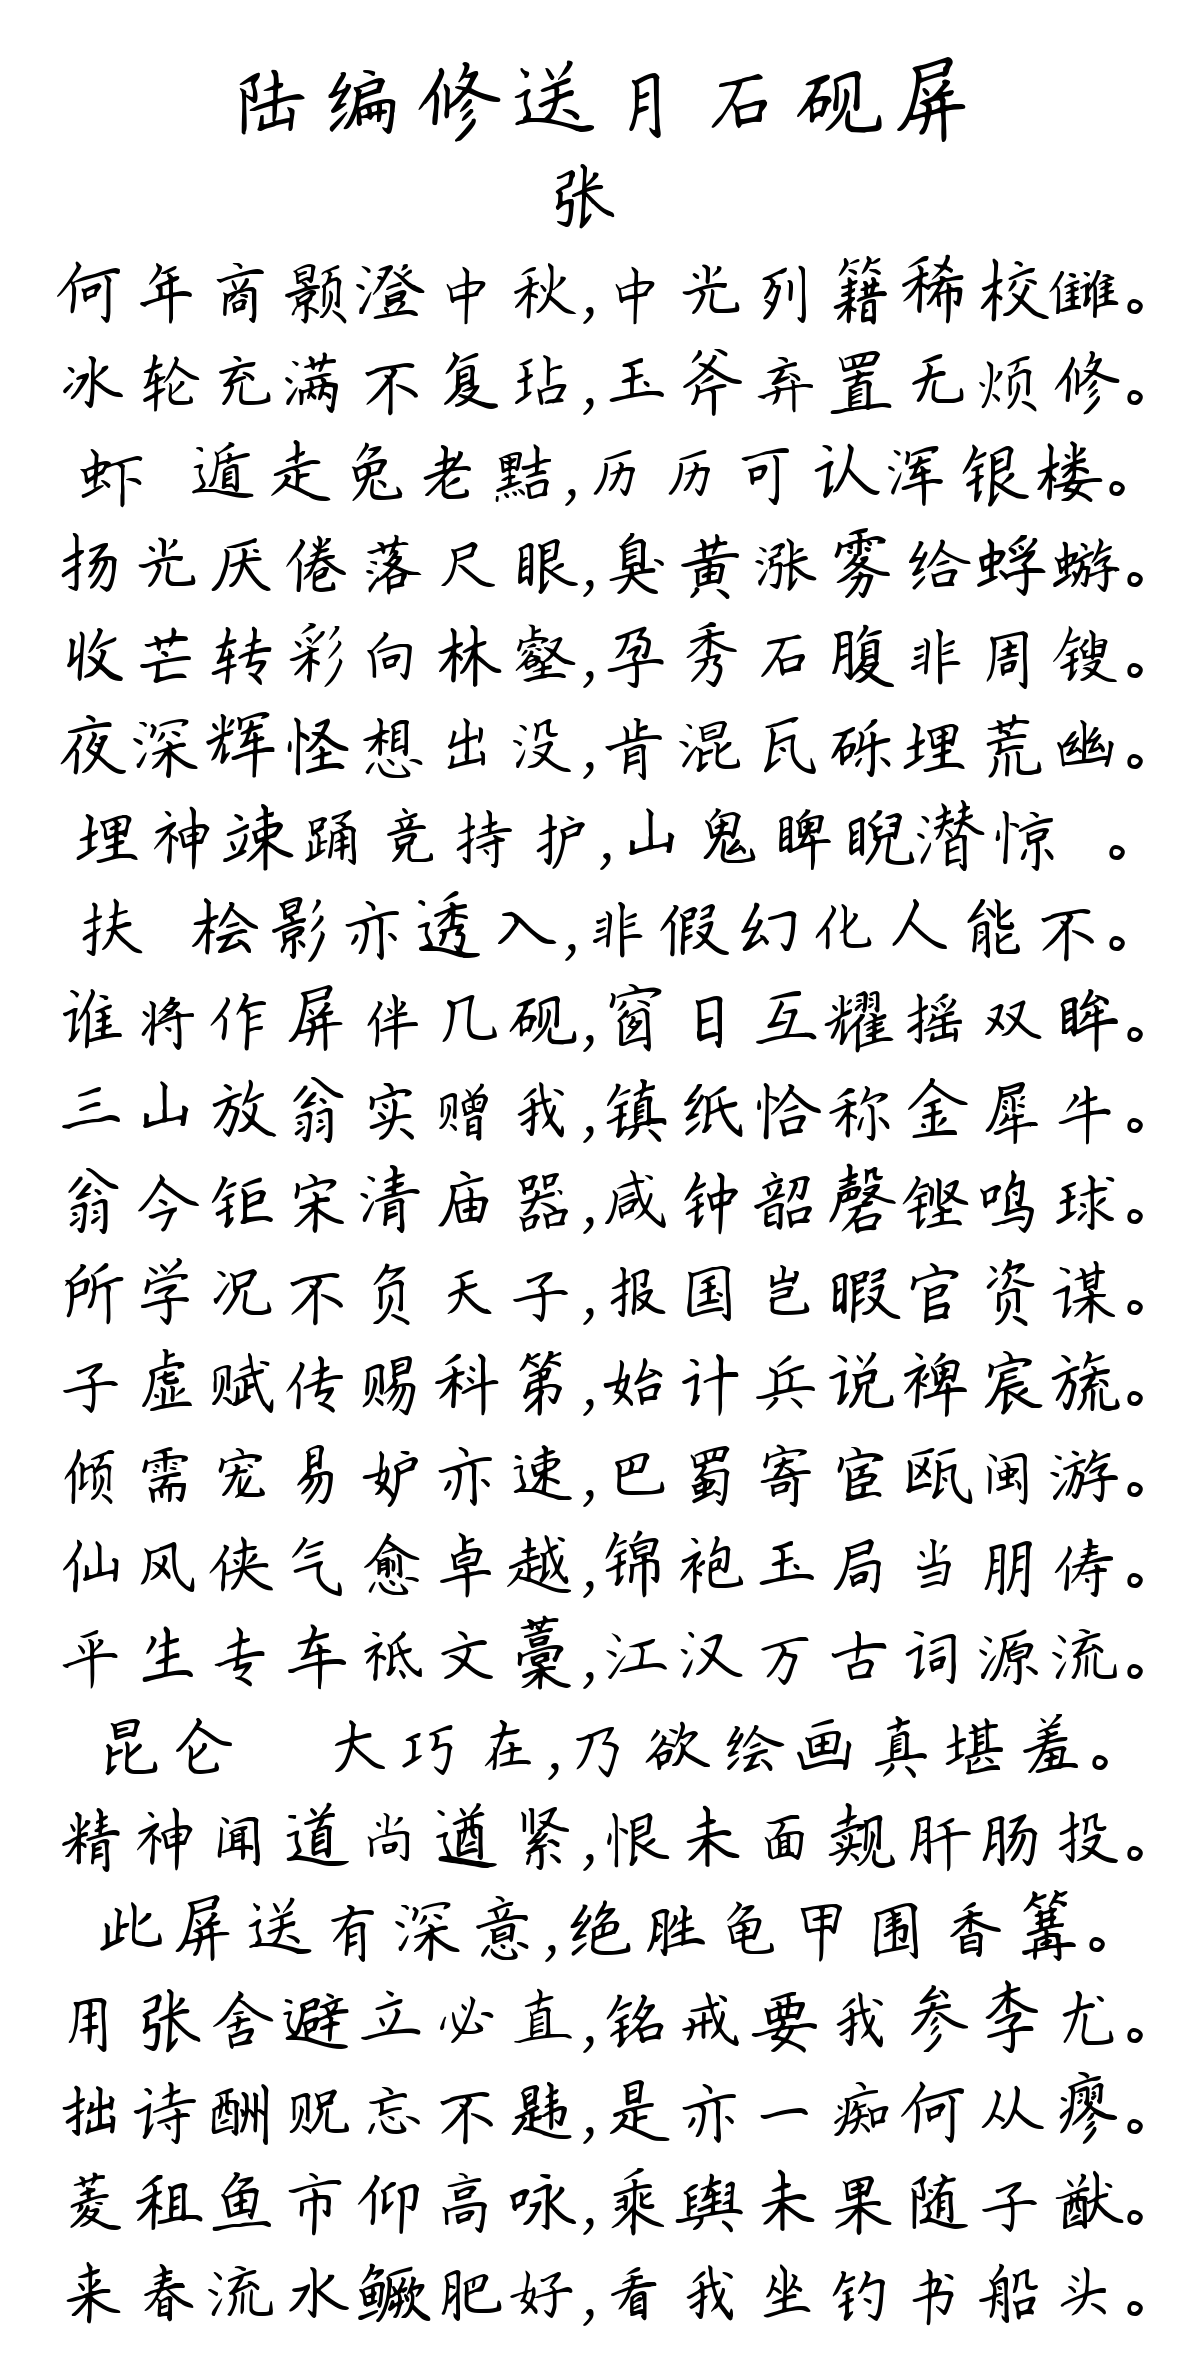 陆编修送月石砚屏
张
何年商颢澄中秋,中光列籍稀校雠。
冰轮充满不复玷,玉斧弃置无烦修。
虾 遁走兔老黠,历历可认浑银楼。
扬光厌倦落尺眼,臭黄涨雾给蜉蝣。
收芒转彩向林壑,孕秀石腹非周锼。
夜深辉怪想出没,肯混瓦砾埋荒幽。
埋神竦踊竞持护,山鬼睥睨潜惊 。
扶 桧影亦透入,非假幻化人能不。
谁将作屏伴几砚,窗日互耀摇双眸。
三山放翁实赠我,镇纸恰称金犀牛。
翁今钜宋清庙器,咸钟韶磬铿鸣球。
所学况不负天子,报国岂暇官资谋。
子虚赋传赐科第,始计兵说裨宸旒。
倾需宠易妒亦速,巴蜀寄宦瓯闽游。
仙风侠气愈卓越,锦袍玉局当朋俦。
平生专车祗文藁,江汉万古词源流。
昆仑 大巧在,乃欲绘画真堪羞。
精神闻道尚遒紧,恨未面觌肝肠投。
此屏送有深意,绝胜龟甲围香篝。
用张舍避立必直,铭戒要我参李尤。
拙诗酬贶忘不韪,是亦一痴何从瘳。
菱租鱼市仰高咏,乘舆未果随子猷。
来春流水鳜肥好,看我坐钓书船头。